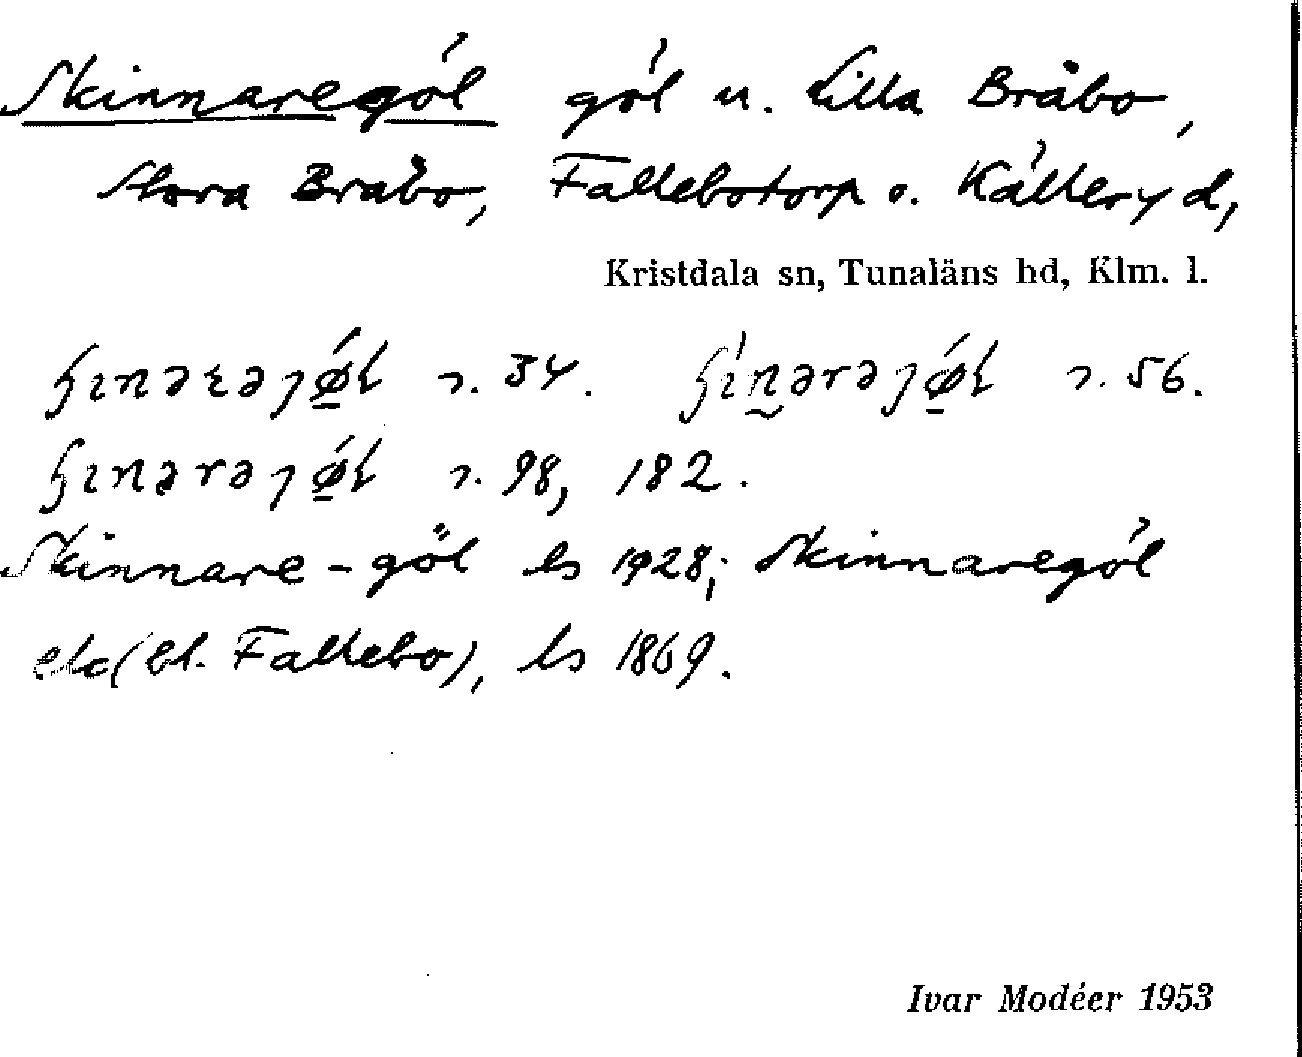 Skinnaregöl göl u. Lilla Bråbo,
Stora Bråbo, Fallebotorp o. Källeryd,
Kristdala sn, Tunaläns hd, Klm. l.
ɿ. 34. ɿ. 56.
ɿ. 98, 182.
Skinnare-göl ls 1928; Skinnaregöl
etc (bl. Fallebo), ls 1869.
Ivar Modéer 1953